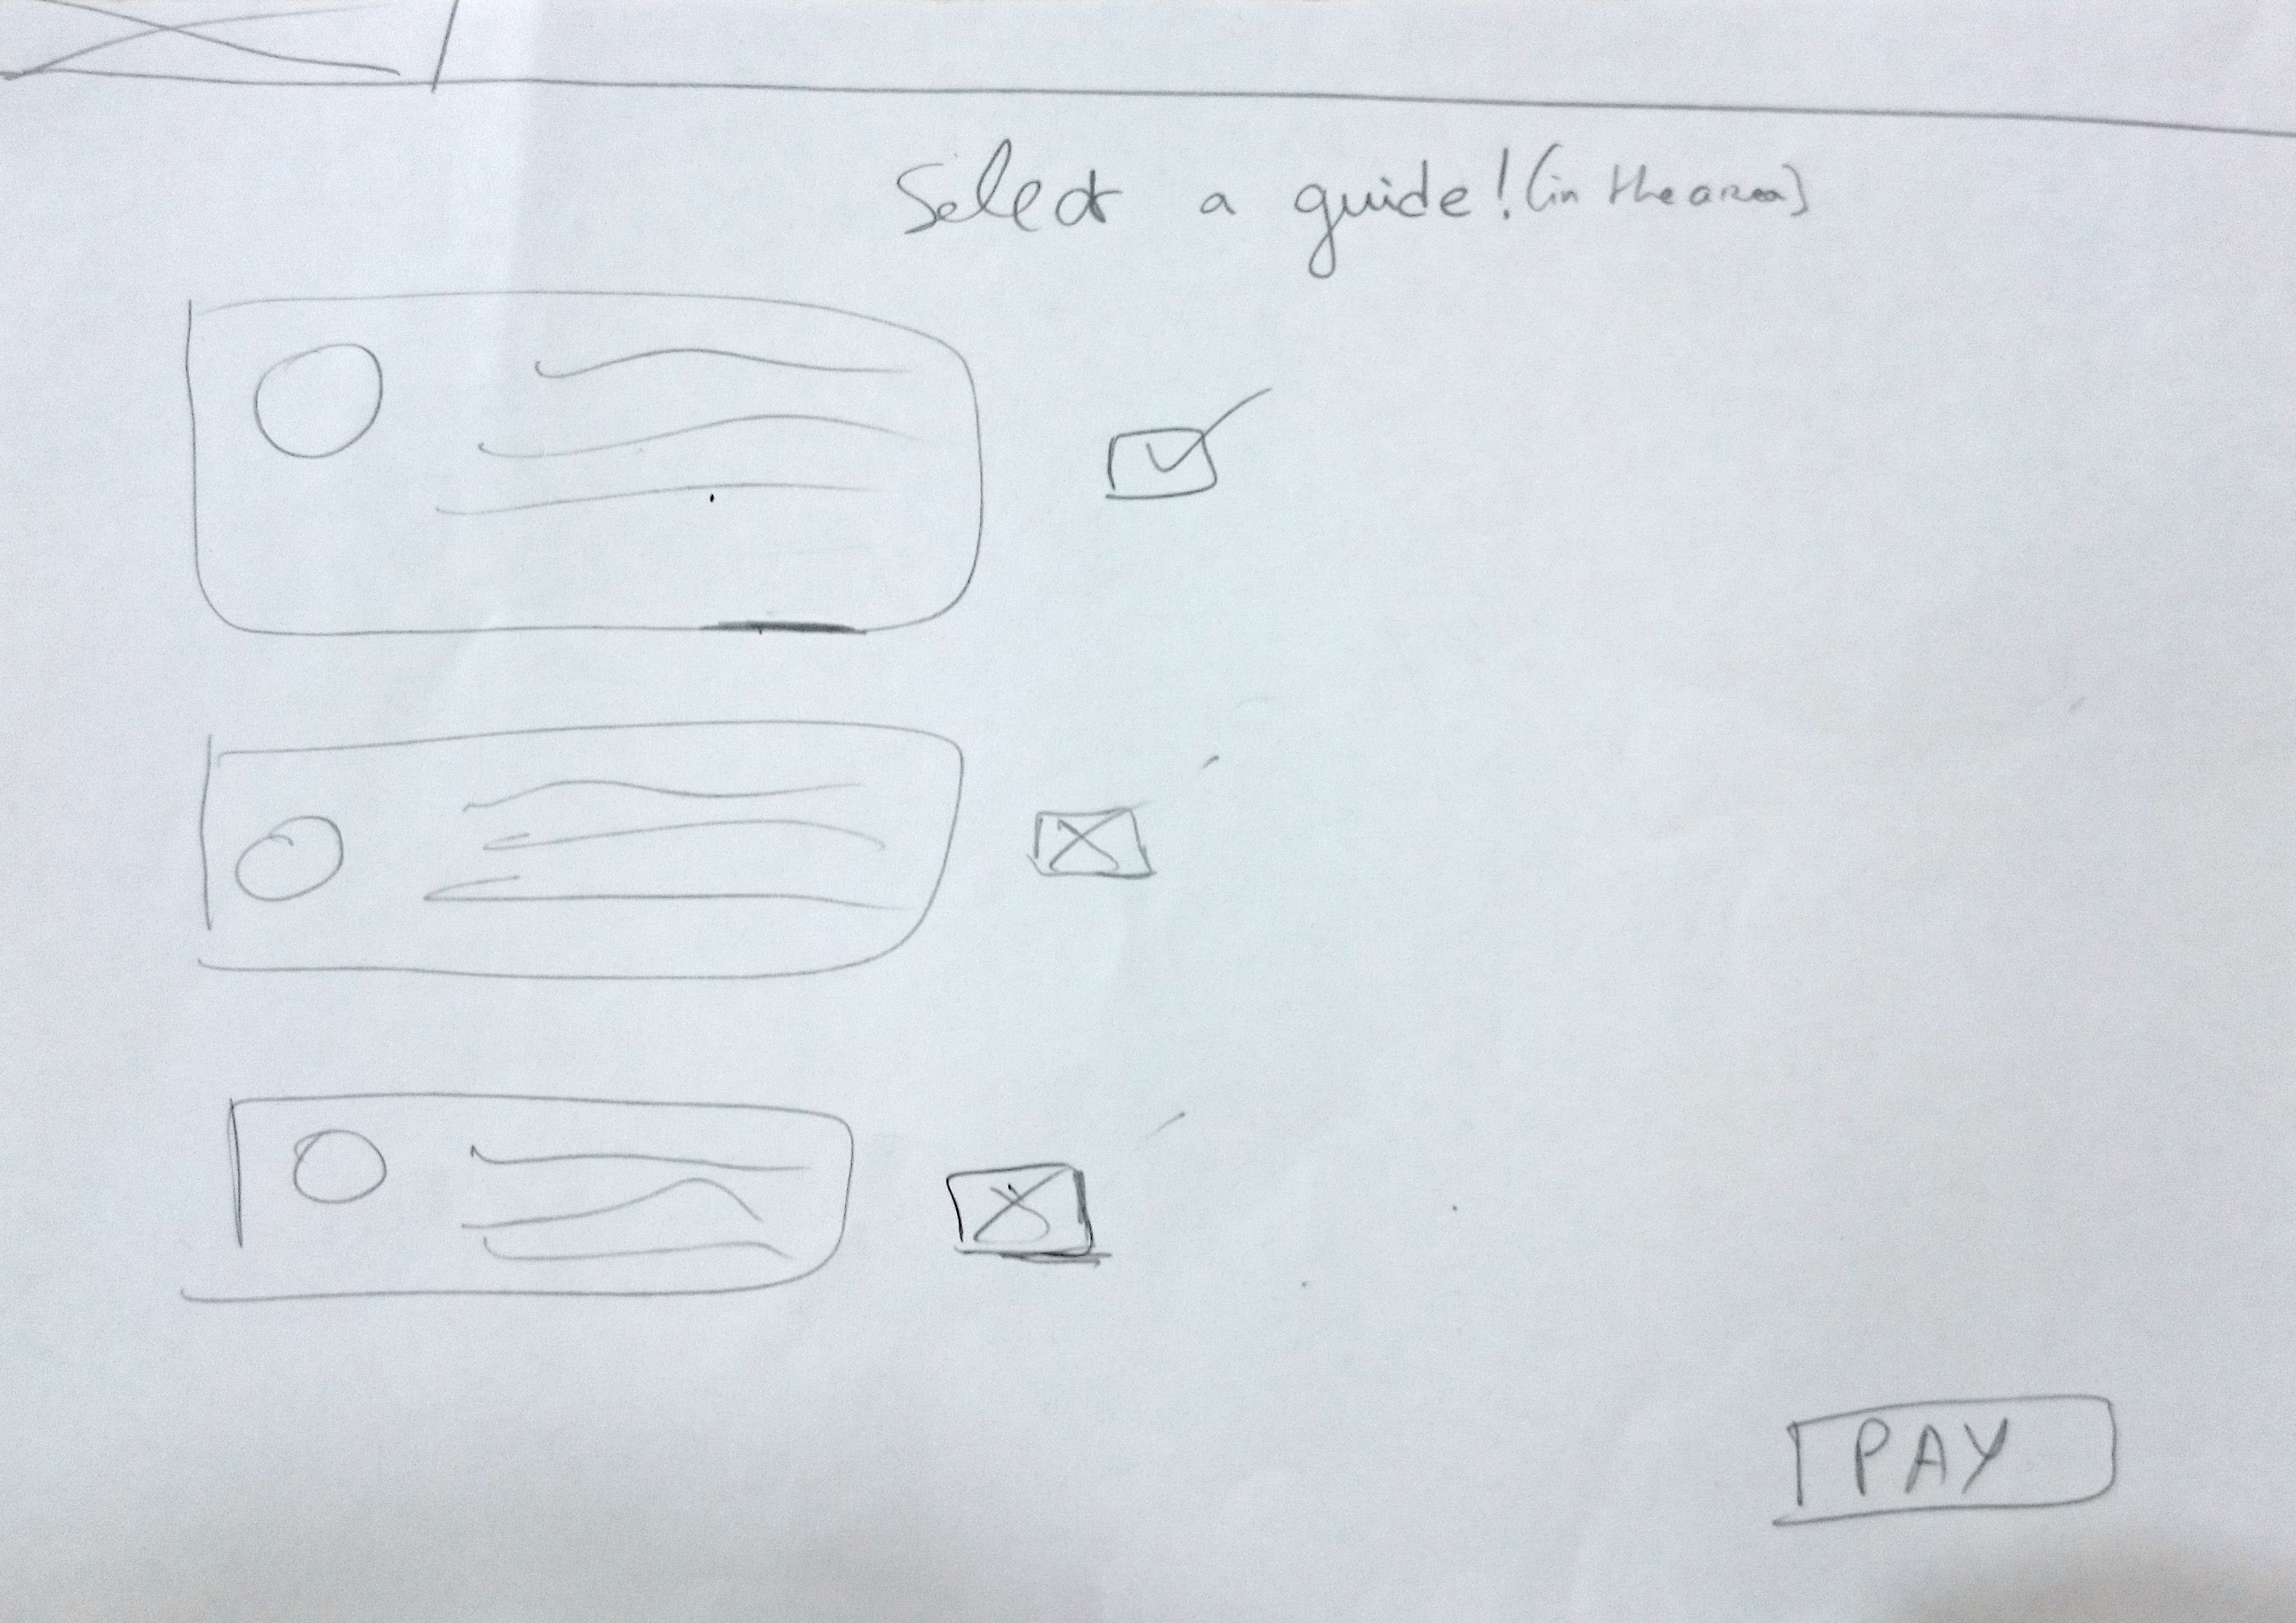 Select a guide! (in the area)
PAY